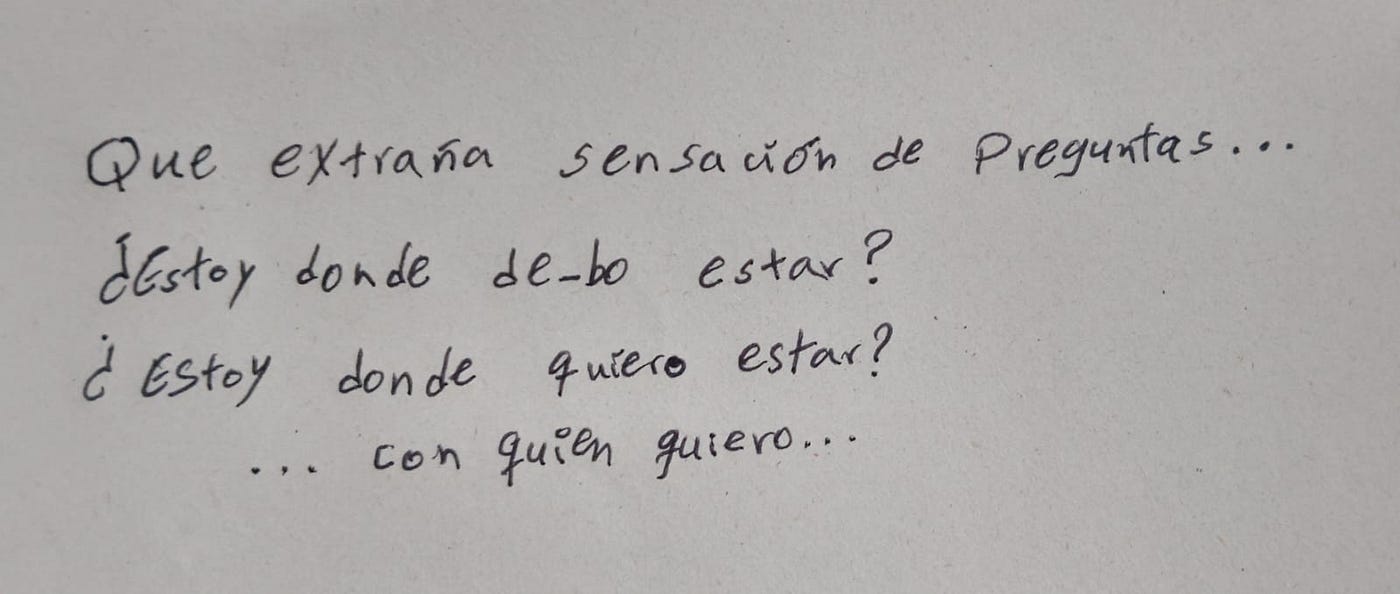 Que extraña sensación de Preguntas...
¿Estoy donde de-bo estar?
¿Estoy donde quiero estar?
... con quien quiero...